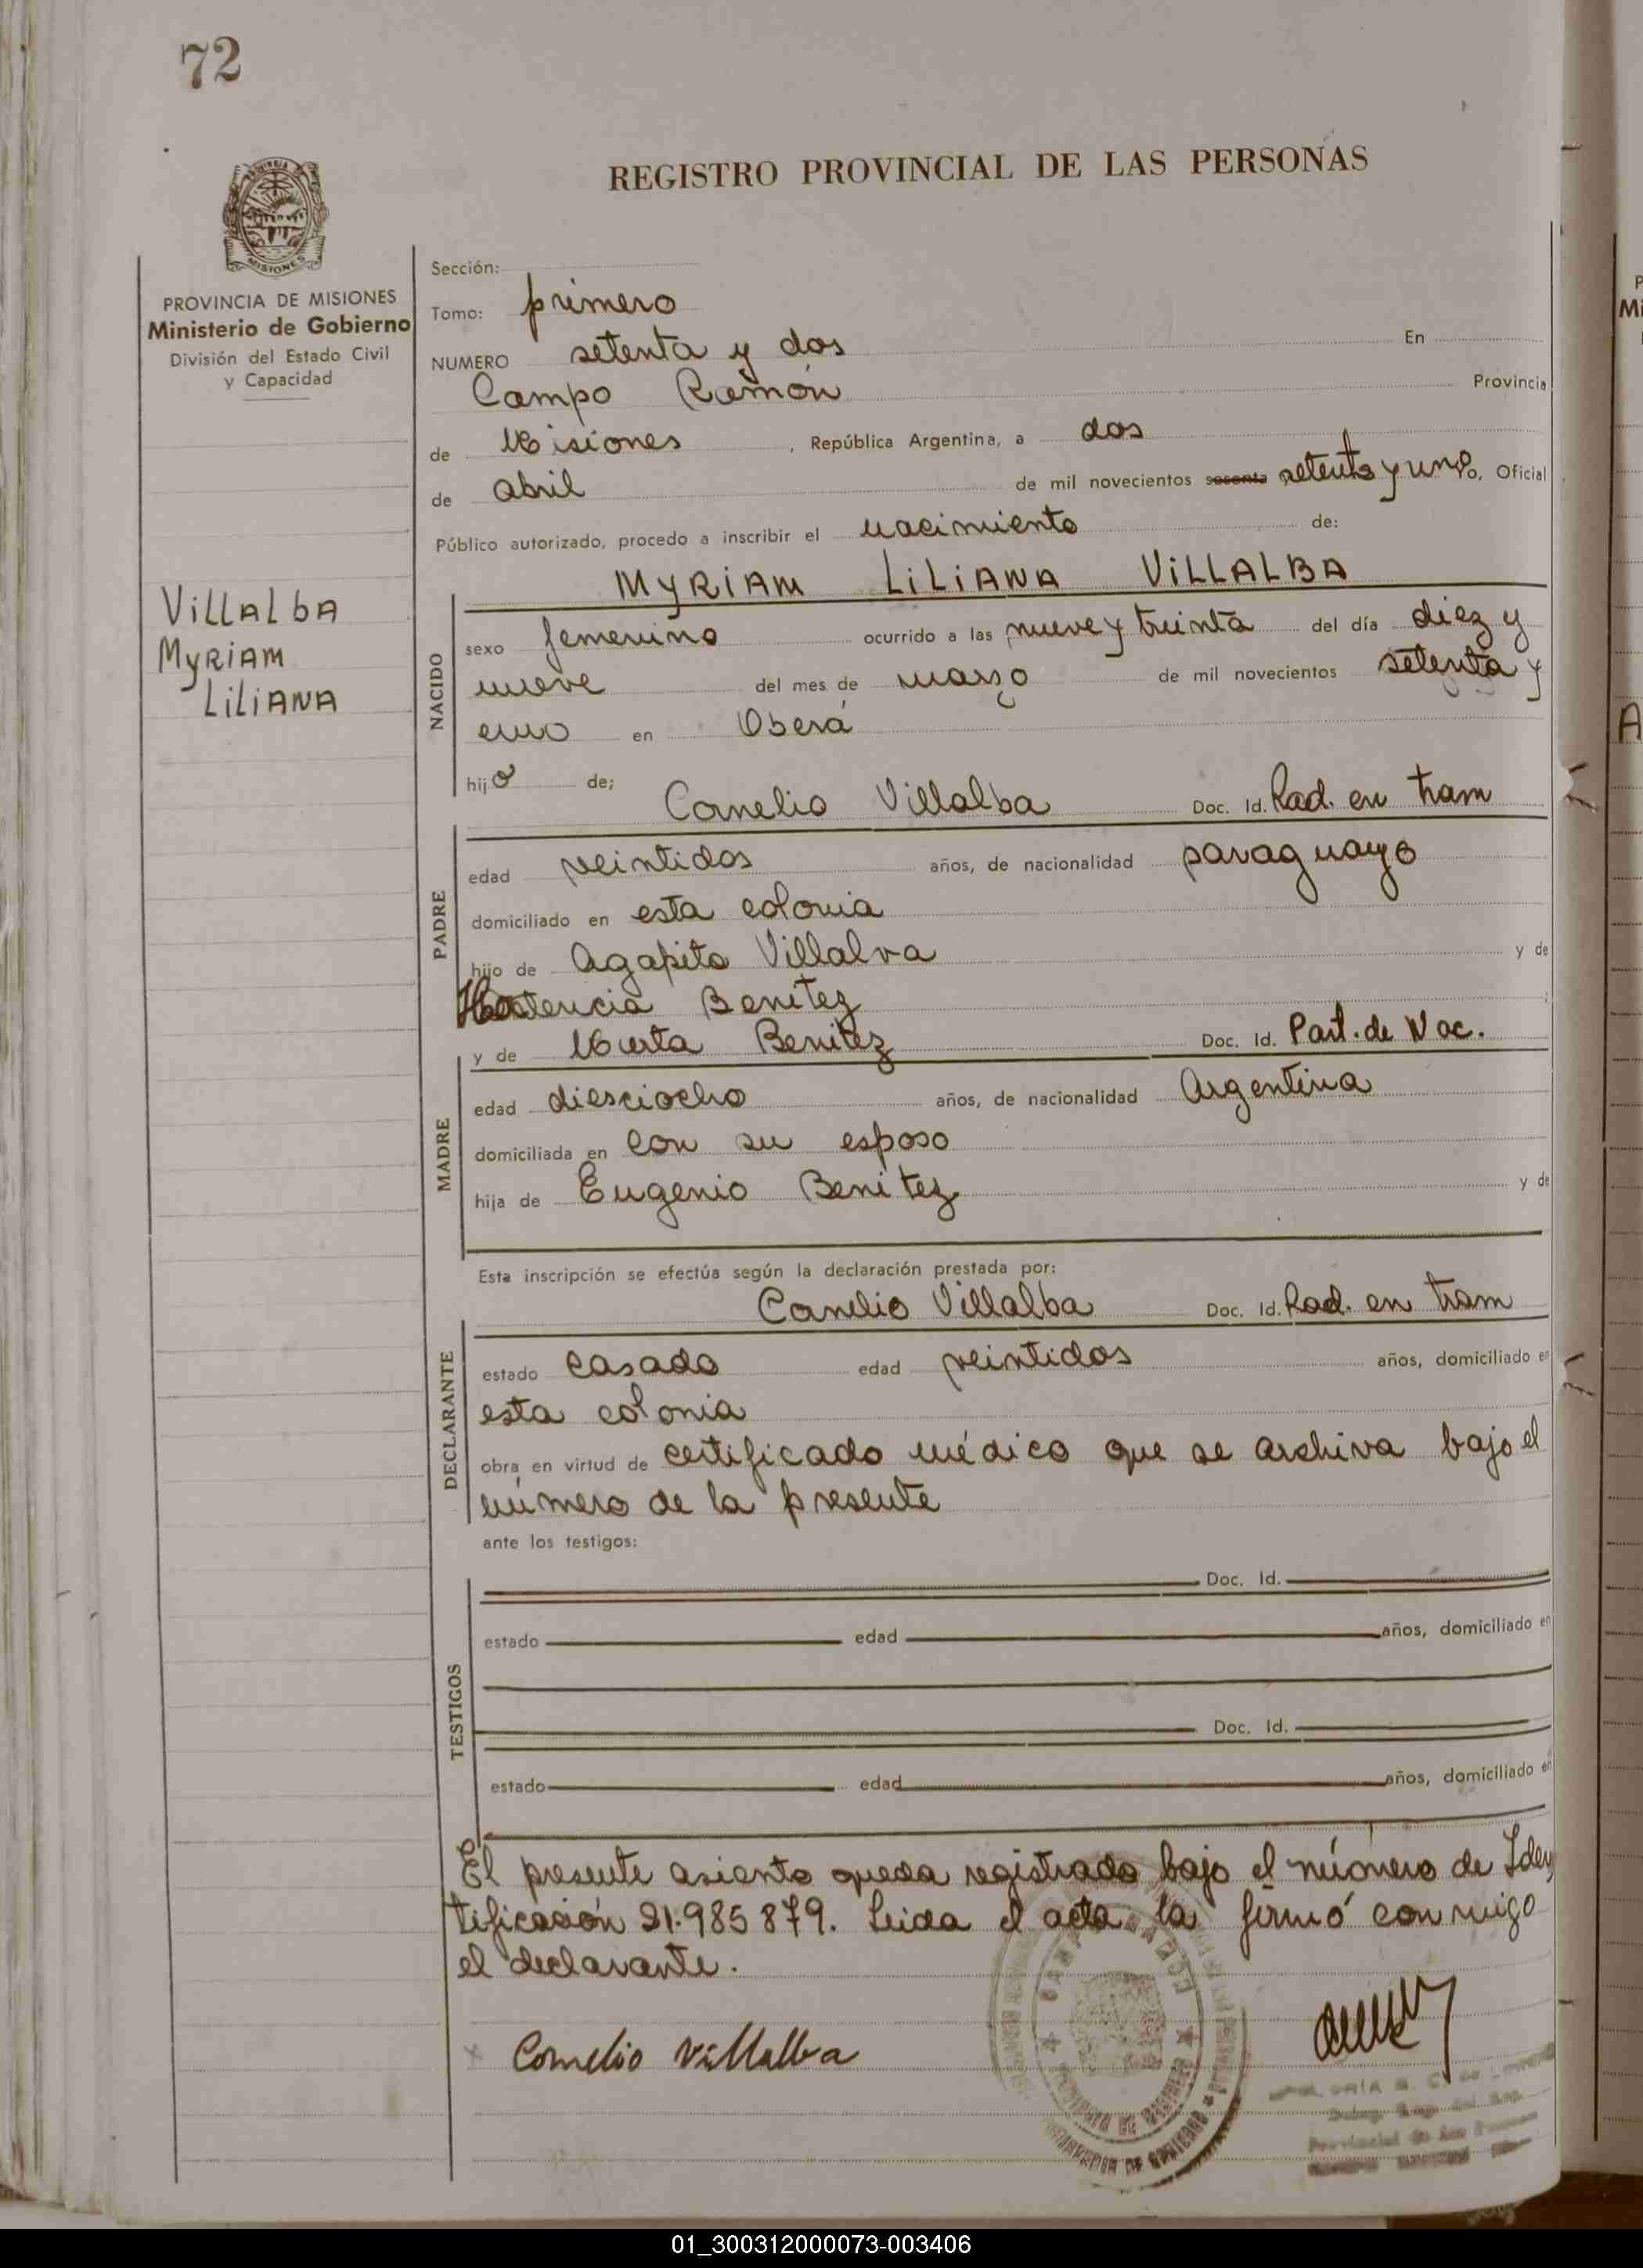 72
REGISTRO PROVINCIAL DE LAS PERSONAS
MISIONES
PROVINCIA DE MISIONES
Ministerio de Gobierno
División del Estado Civil
y Capacidad
Sección:
Tomo: primero
NUMERO setenta y dos En
Campo Ramón Provincia
de Misiones, República Argentina, a dos
de abril de mil novecientos sesenta setenta y uno, Oficial
Público autorizado, procedo a inscribir el nacimiento de:
MYRIAM LILIANA VILLALBA
VILLALBA
MYRIAM
LILIANA
NACIDO
sexo femenino ocurrido a las nueve y treinta del día diez y
nueve del mes de marzo de mil novecientos setenta y
uno en Oberá
hija de; Cornelio Villalba Doc. Id. Rad. en tram
PADRE
edad veintidos años, de nacionalidad paraguayo
domiciliado en esta colonia
hijo de Agapito Villalva y de
Hortencia Benitez
y de Mirta Benitez Doc. Id. Part. de Nac.
MADRE
edad diesciocho años, de nacionalidad Argentina
domiciliada en con su esposo
hija de Eugenio Benitez y de
Esta inscripción se efectúa según la declaración prestada por:
Cornelio Villalba Doc. Id. Rad. en tram
DECLARANTE
estado casado edad veintidos años, domiciliado en
esta colonia
obra en virtud de certificado médico que se archiva bajo el
número de la presente
ante los testigos:
TESTIGOS
Doc. Id.
estado edad años, domiciliado en
Doc. Id.
estado edad años, domiciliado en
El presente asiento queda registrado bajo el número de Iden
tificación 21.985879. Leida el acta, la firmó conmigo
el declarante.
Cornelio Villalba
01_300312000073-003406